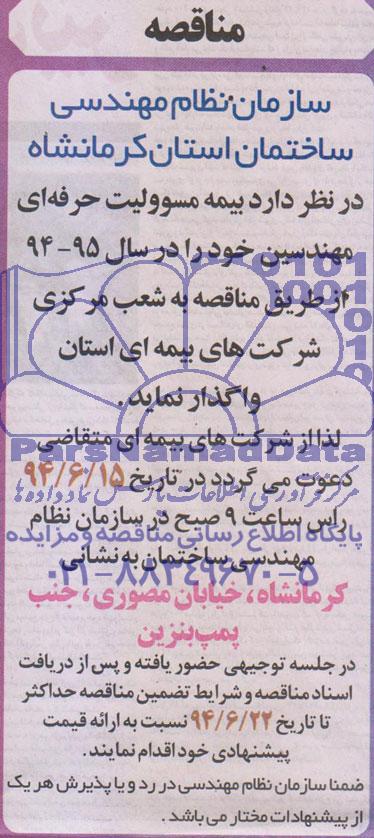 مناقصه
سازمان نظام مهندسی
ساختمان استان کرمانشاه
در نظر دارد بیمه مسوولیت حرفه‌ای
مهندسین خود را در سال ۹۵-۹۴
از طریق مناقصه به شعب مرکزی
شرکت های بیمه ای استان
واگذار نماید.
لذا از شرکت های بیمه ای متقاضی
دعوت می گردد در تاریخ ۹۴/۶/۱۵
راس ساعت ۹ صبح در سازمان نظام
مهندسی ساختمان به نشانی
کرمانشاه، خیابان مصوری، جنب
پمپ بنزین
در جلسه توجیهی حضور یافته و پس از دریافت
اسناد مناقصه و شرایط تضمین مناقصه حداکثر
تا تاریخ ۹۴/۶/۲۲ نسبت به ارائه قیمت
پیشنهادی خود اقدام نمایند.
ضمنا سازمان نظام مهندسی در رد و یا پذیرش هر یک
از پیشنهادات مختار می باشد.
ParsNamadData
مرکز گردآوری اطلاعات پارس نماد داده ها
پایگاه اطلاع رسانی مناقصه و مزایده
۰۲۱-۸۸۳۴۹۶۷۰-۵